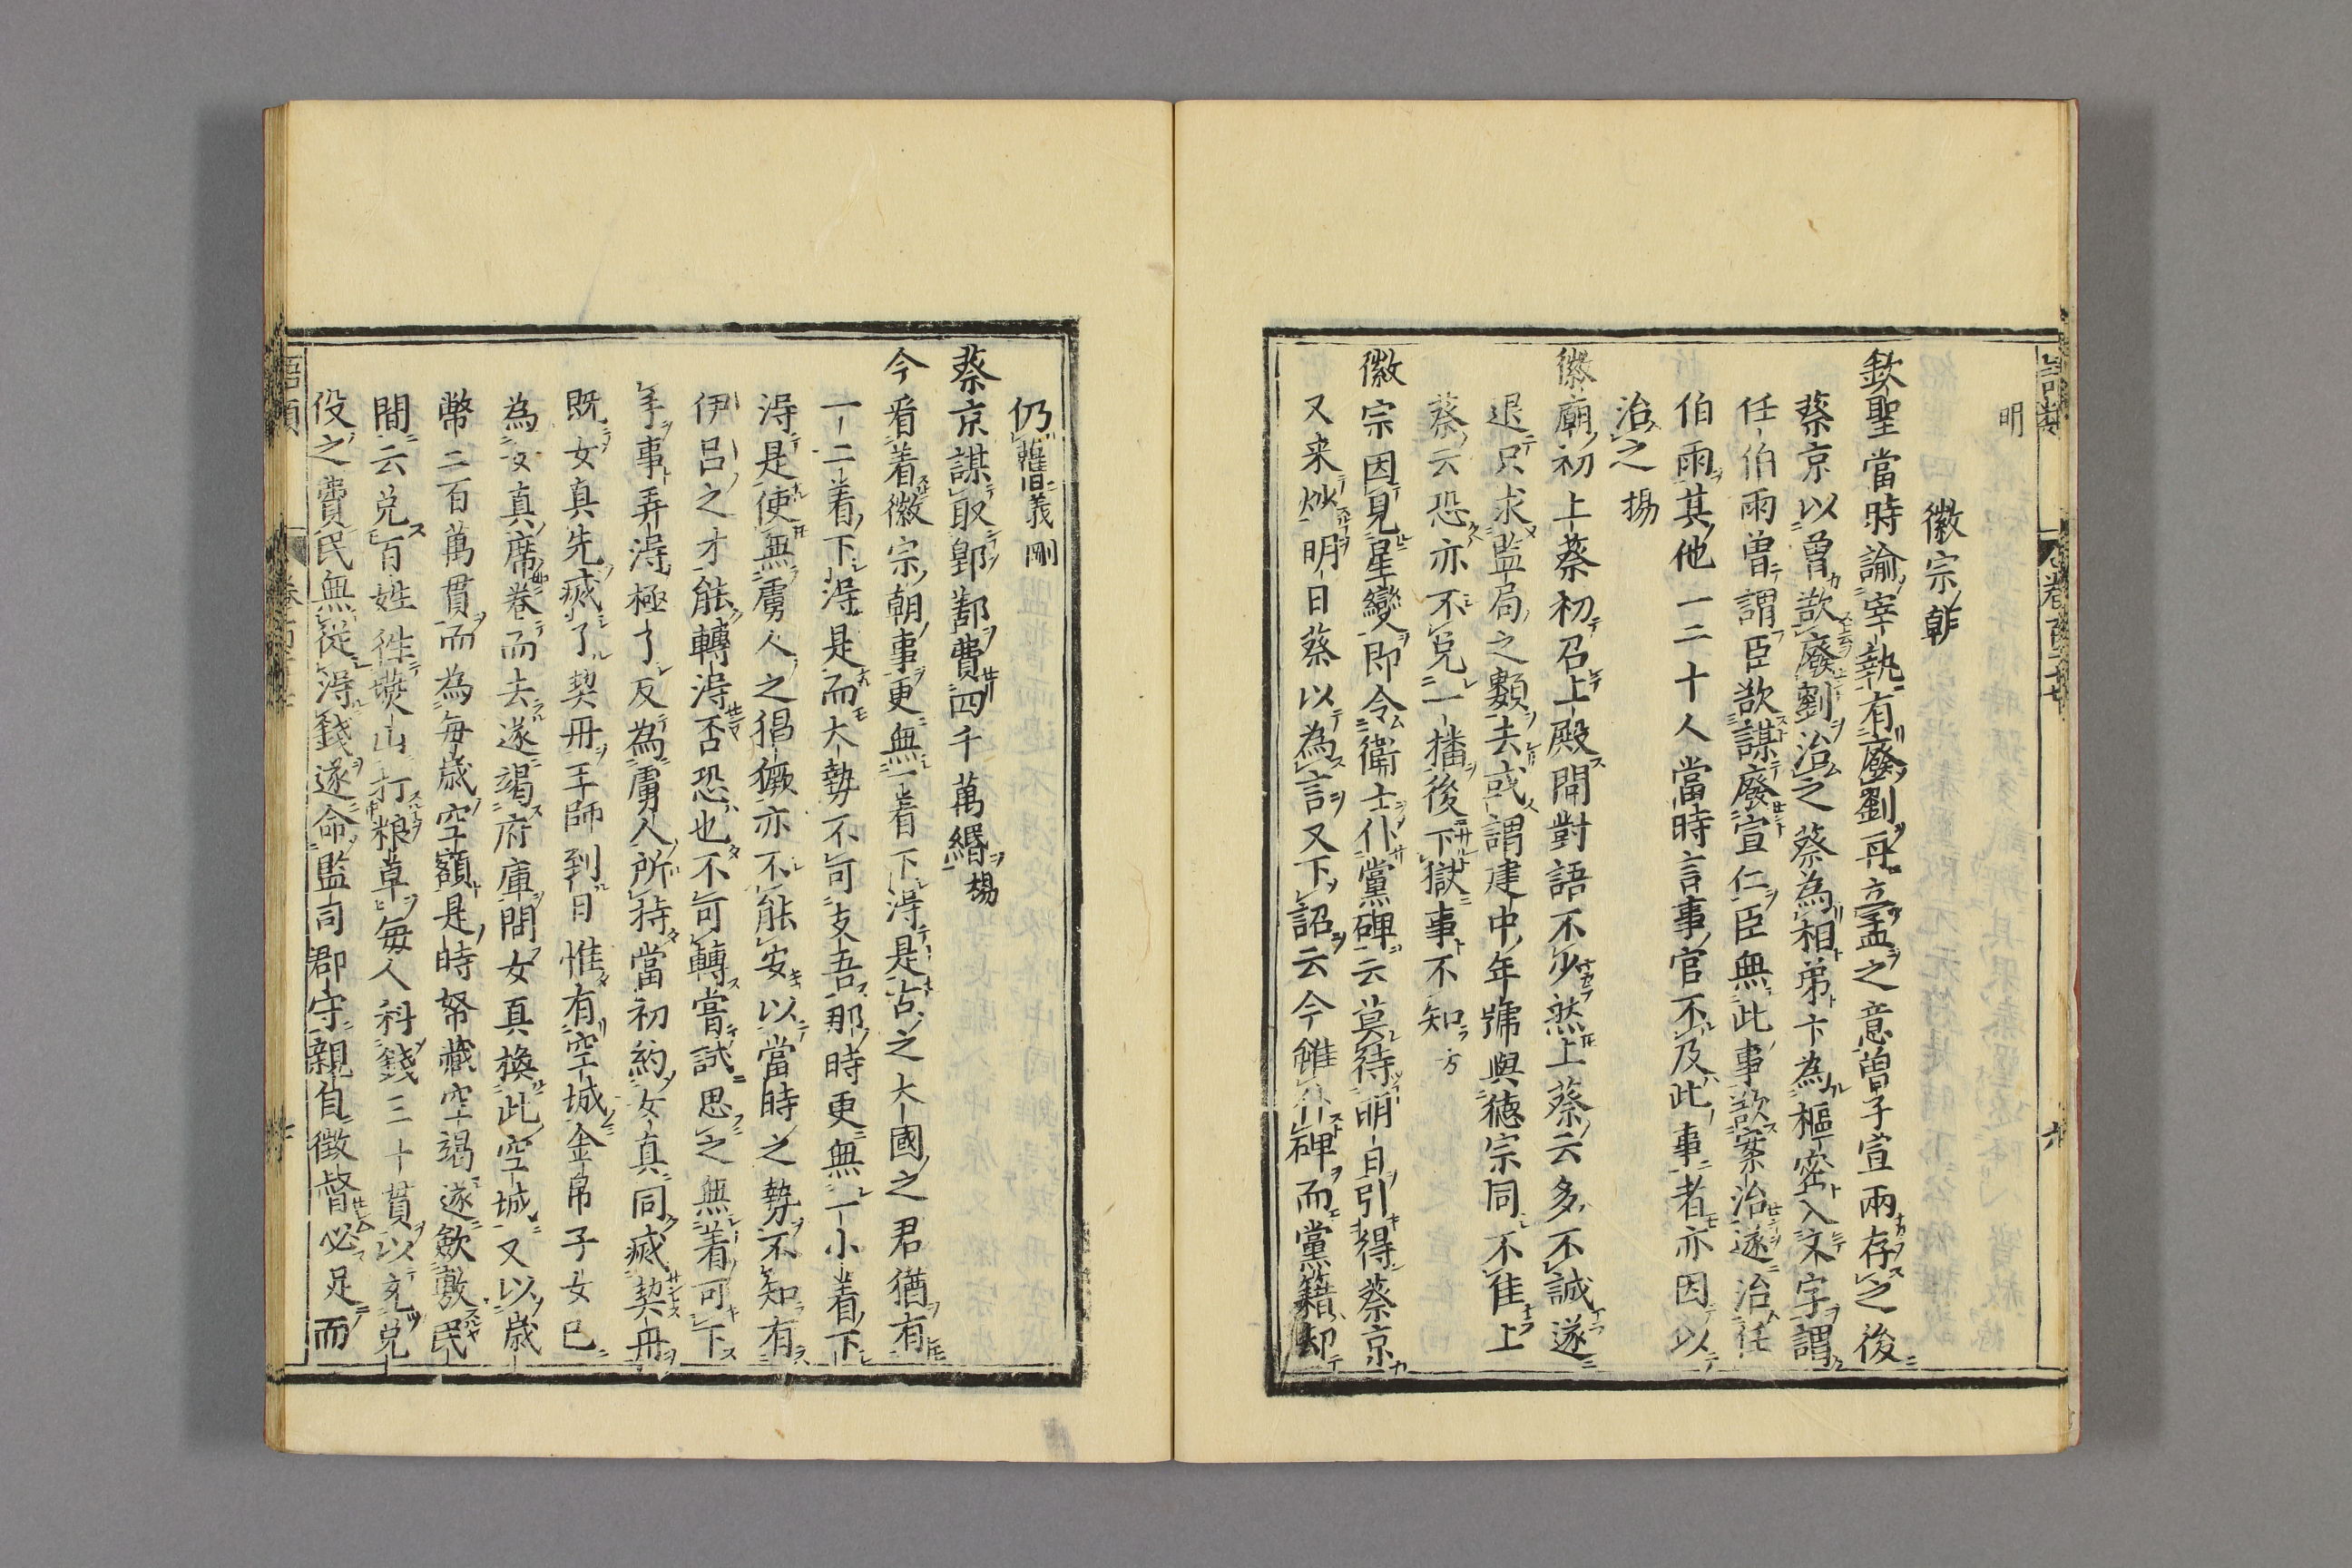 明
徽宗朝
欽聖當時諭宰執有廢劉再立孟之意曽子宣兩存之後
蔡京以曽欲廢劉治之蔡為相弟卞為樞密入文字謂
任伯雨曽謂臣欲謀廢宣仁臣無此事欲案治遂治任
伯雨其他一二十人當時言事官不及此事者亦因以
治之 揚
徽廟初上蔡初召上殿問對語不少然上蔡云多不誠遂
退只求監局之類去或謂建中年號與德宗同不佳上
蔡云恐亦不免一播後下獄事不知 方
徽宗因見星變即令衛士仆黨碑云莫待明日引得蔡京
又来炒明日蔡以為言又下詔云今雖仆碑而黨籍却
仍舊 義剛
蔡京謀取鄞鄯費四千萬緡 揚
今看着徽宗朝事更無一着下得是古之大國之君猶有
一二着下得是而大勢不可支吾那時更無一小着下
得是使無虜人之猖獗亦不能安以當時之勢不知有
伊呂之才能轉得否恐也不可轉嘗試思之無着可下
手事弄得極了反為虜人所持當初約女真同滅契丹
既女真先滅了契丹王師到日惟有空城金帛子女已
為女真席卷而去遂竭府庫問女真換此空城又以歳
幣二百萬貫而為毎歳空額是時帑藏空竭遂斂敷民
間云免百姓往燕山打粮草毎人科錢三十貫以充免
役之費民無從得錢遂命監司郡守親自徴督必足而